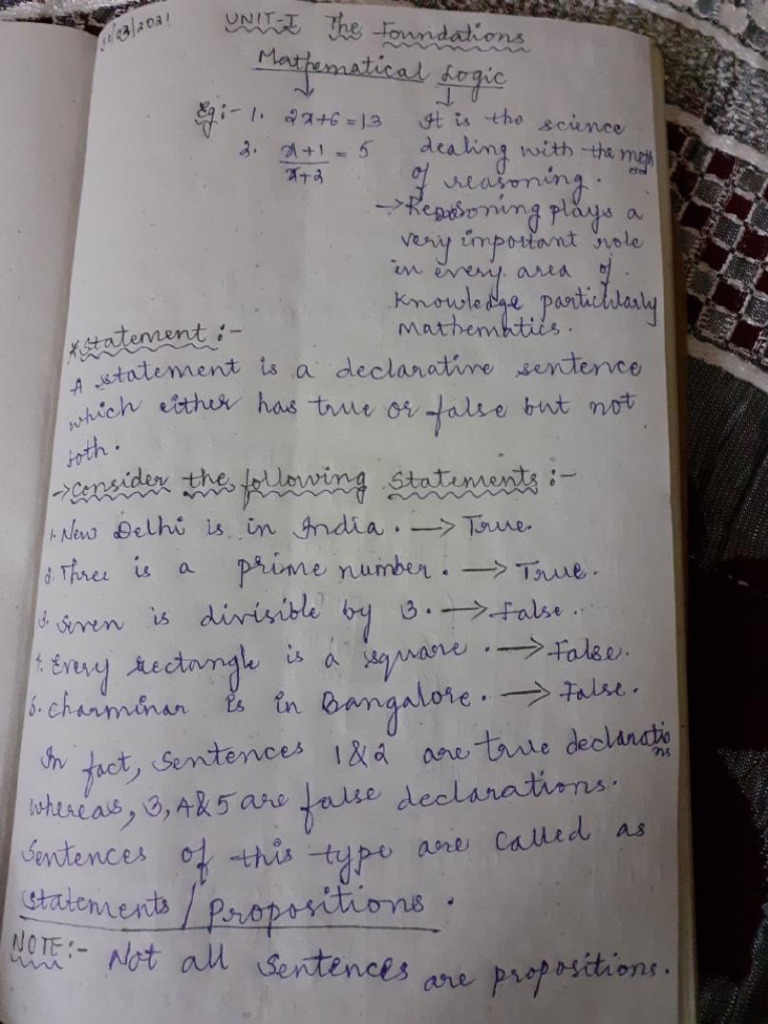 /23/2021
UNIT-I The Foundations
Mathematical Logic
Eg:- 1. 2x+6=13
2. x+1/x+2 = 5
It is the science
dealing with the method
of reasoning.
→ Reasoning plays a
very important role
in every area of
knowledge particularly
Mathematics.
*Statement:-
A statement is a declarative sentence
which either has true or false but not
both.
→Consider the following Statements:-
1. New Delhi is in India. → True.
2. Three is a prime number. → True.
3. Seven is divisible by 3. → False.
4. Every rectangle is a square. → False.
5. Charminar is in Bangalore. → False.
In fact, Sentences 1&2 are true declarations
whereas, 3,4&5 are false declarations.
Sentences of this type are called as
Statements/Propositions.
NOTE:- Not all Sentences are propositions.